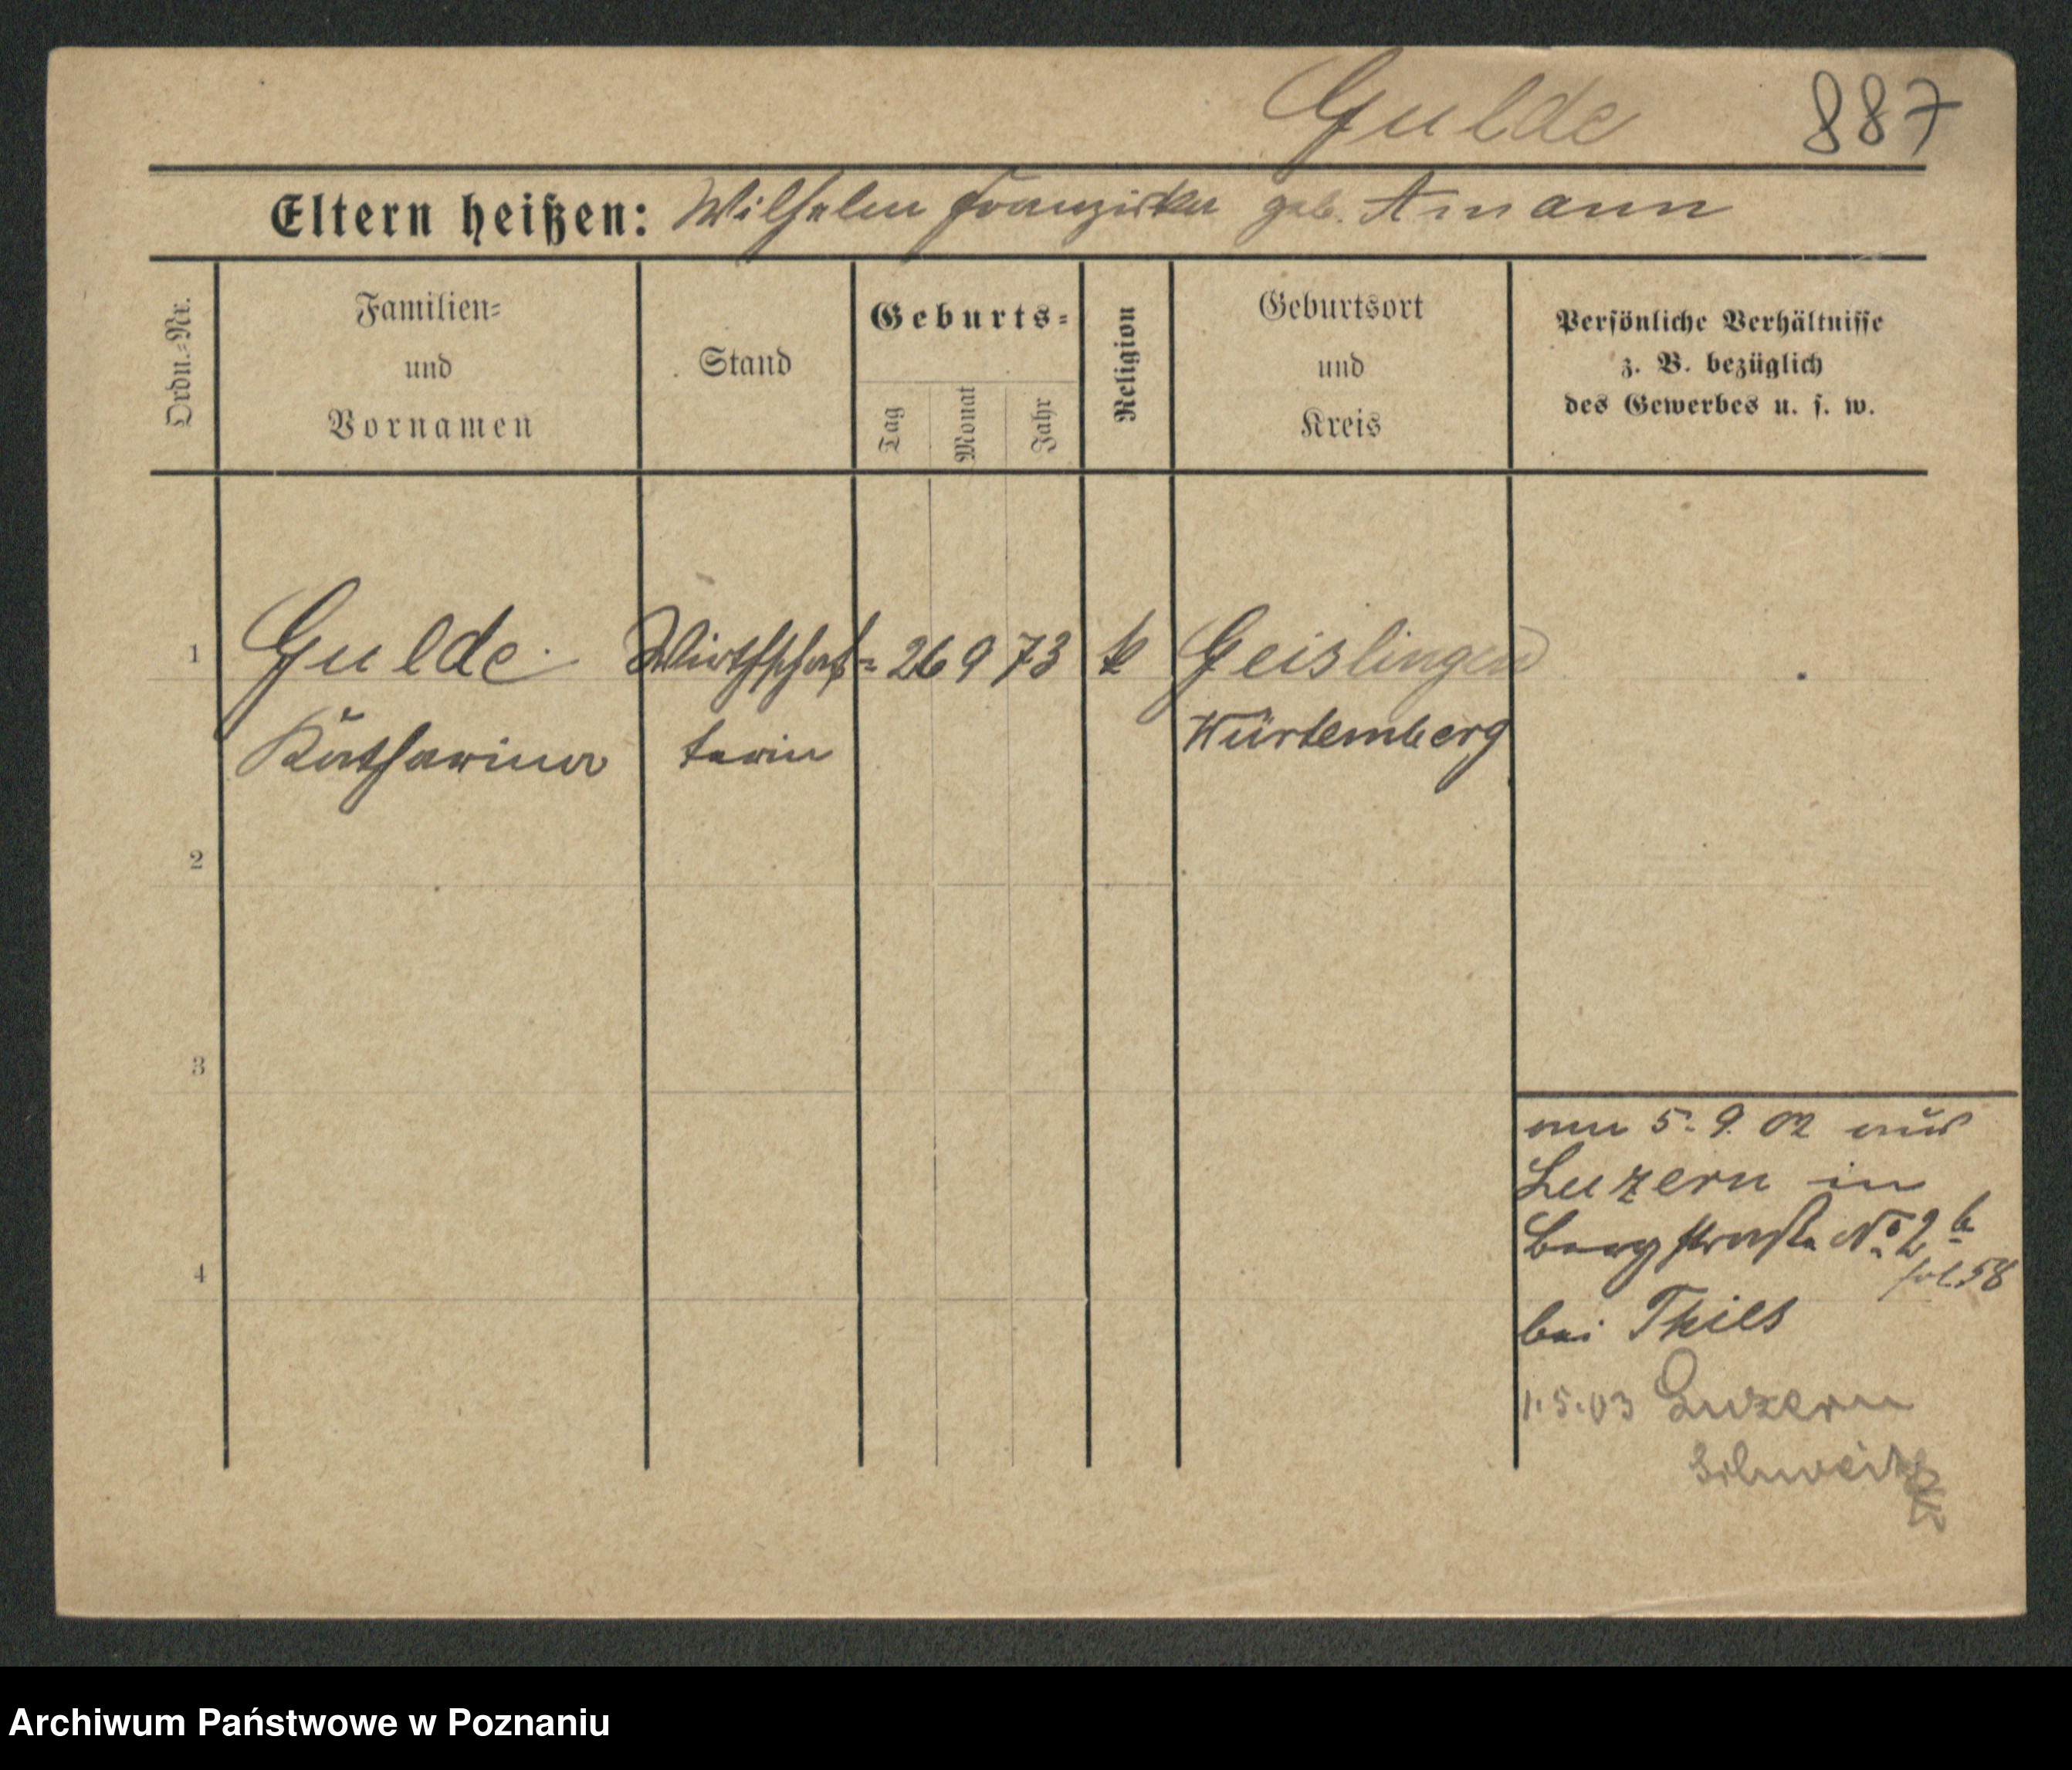 Gulde 887
Eltern heißen: Wilhelm Franziska geb. Amann
Ordn.=Nr.
Familien=
und
Vornamen
Stand
Geburts=
Tag
Monat
Jahr
Religion
Geburtsort
und
Kreis
Persönliche Verhältnisse
z. B. bezüglich
des Gewerbes u. s. w.
1 Gulde Wirthschaf= 26 9 73 k Geislingen
Katharina terin Würtemberg
2
3
4
am 5. 9. 02 aus
Luzern in
Bergstraße No 2 b
fol. 58
bei Thiel
1.5.03 Luzern
Schweiz
Archiwum Państwowe w Poznaniu